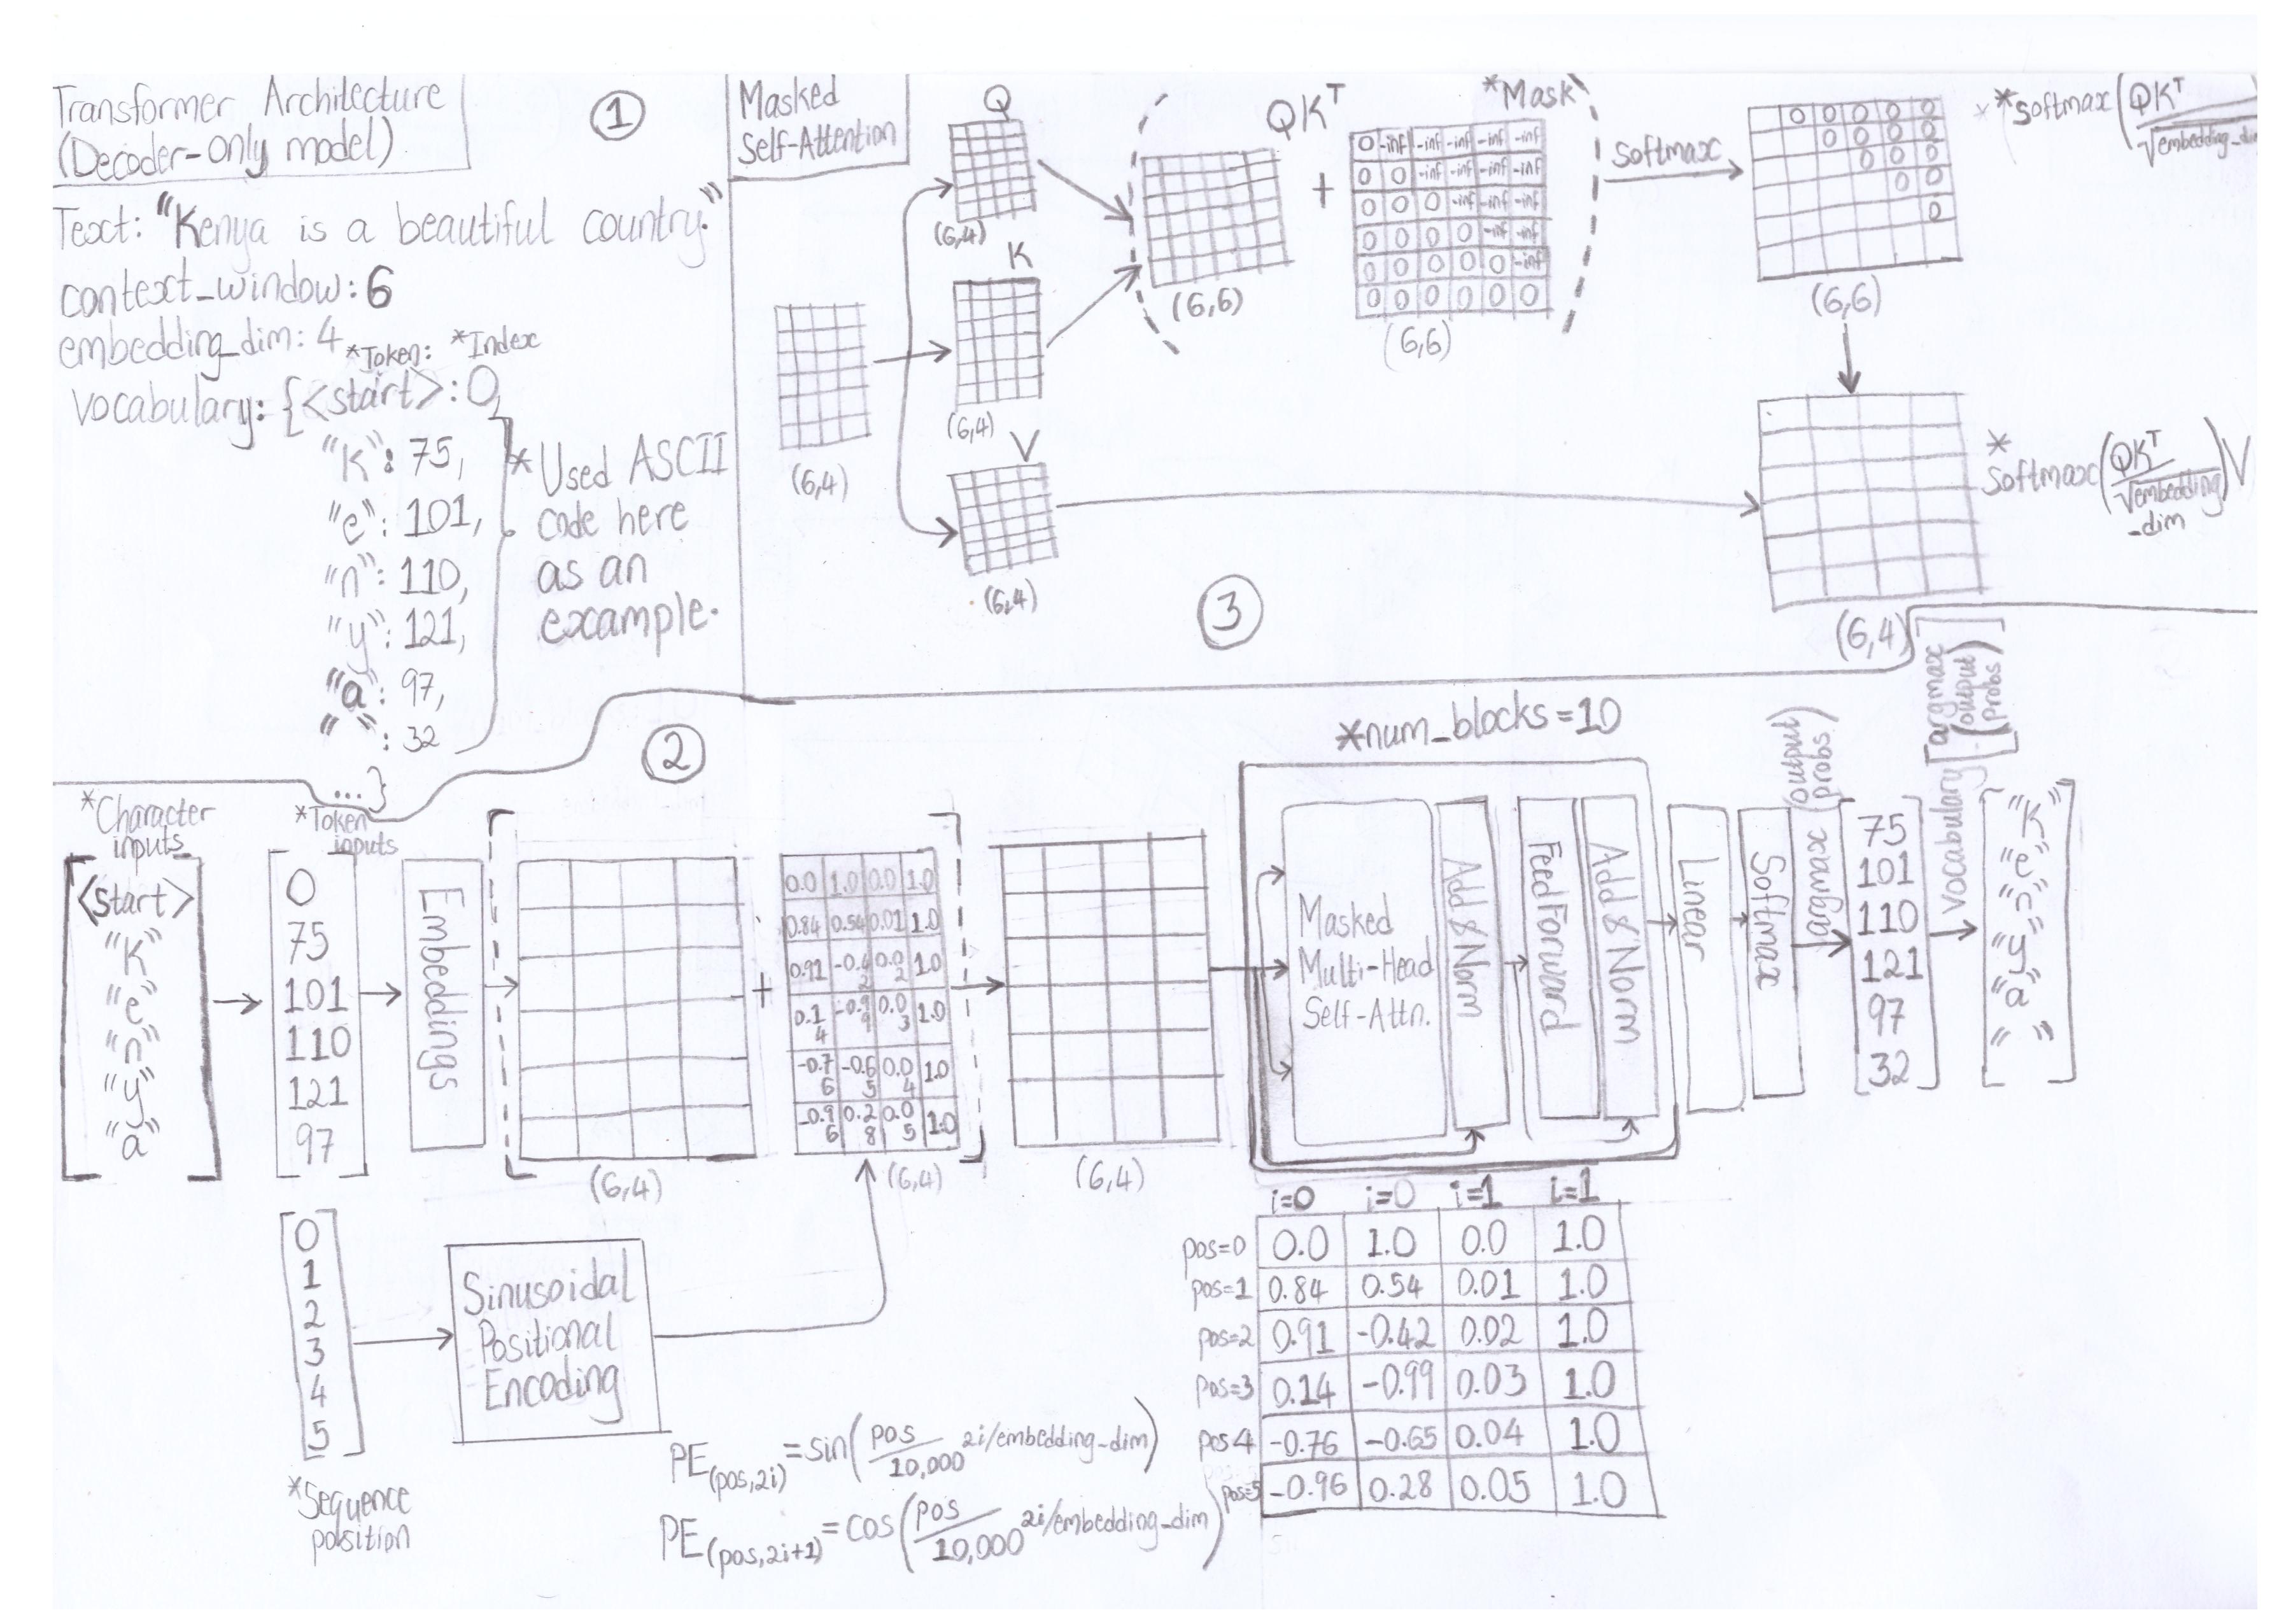 Transformer Architecture
(Decoder-only model)
①
Text: "Kenya is a beautiful country."
context_window: 6
embedding_dim: 4
*Token: *Index
vocabulary: {<start>: 0,
"K": 75,
"e": 101,
"n": 110,
"y": 121,
"a": 97,
" ": 32
...}
* Used ASCII
code here
as an
example.
Masked
Self-Attention
Q
(6,4)
K
(6,4)
V
(6,4)
(6,4)
QKᵀ
(6,6)
+
*Mask
0 -inf -inf -inf -inf -inf
0 0 -inf -inf -inf -inf
0 0 0 -inf -inf -inf
0 0 0 0 -inf -inf
0 0 0 0 0 -inf
0 0 0 0 0 0
(6,6)
softmax
0 0 0 0 0
0 0 0 0
0 0 0
0 0
0
(6,6)
*softmax(QKᵀ/√embedding_di
(6,4)
*
softmax(QKᵀ/√embedding_dim)V
③
②
*Character
inputs
<start>
"K"
"e"
"n"
"y"
"a"
*Token
inputs
0
75
101
110
121
97
Embeddings
(6,4)
+
0.0 1.0 0.0 1.0
0.84 0.54 0.01 1.0
0.91 -0.42 0.02 1.0
0.14 -0.99 0.03 1.0
-0.76 -0.65 0.04 1.0
-0.96 0.28 0.05 1.0
(6,4)
(6,4)
*num_blocks=10
Masked
Multi-Head
Self-Attn.
Add & Norm
Feed Forward
Add & Norm
Linear
Softmax
argmax (output probs)
75
101
110
121
97
32
vocabulary[argmax(output probs)]
"K"
"e"
"n"
"y"
"a"
" "
0
1
2
3
4
5
*Sequence
position
Sinusoidal
Positional
Encoding
PE(pos,2i)=sin(pos/10,000^2i/embedding_dim)
PE(pos,2i+1)=cos(pos/10,000^2i/embedding_dim)
i=0 i=0 i=1 i=1
pos=0 0.0 1.0 0.0 1.0
pos=1 0.84 0.54 0.01 1.0
pos=2 0.91 -0.42 0.02 1.0
pos=3 0.14 -0.99 0.03 1.0
pos4 -0.76 -0.65 0.04 1.0
pos=5 -0.96 0.28 0.05 1.0